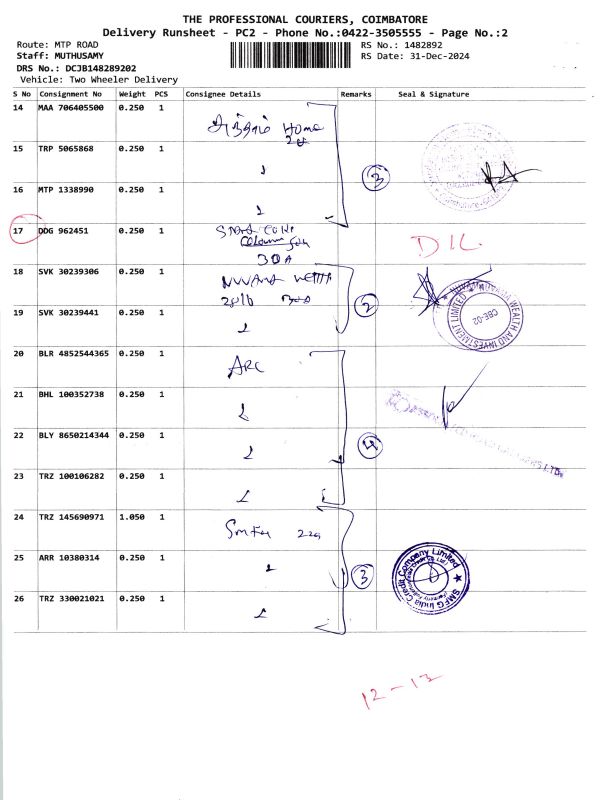 THE PROFESSIONAL COURIERS, COIMBATORE
Delivery Runsheet - PC2 - Phone No.:0422-3505555 - Page No.:2
Route: MTP ROAD
RS No.: 1482892
Staff: MUTHUSAMY
RS Date: 31-Dec-2024
DRS No.: DCJB148289202
Vehicle: Two Wheeler Delivery
S No Consignment No Weight PCS Consignee Details Remarks Seal & Signature
14 MAA 706405500 0.250 1
Home
15 TRP 5065868 0.250 1
3
16 MTP 1338990 0.250 1
17 DDG 962451 0.250 1
DIL
18 SVK 30239306 0.250 1
2
NUVAMA WEALTH AND INVESTMENT LIMITED
CBE-02
19 SVK 30239441 0.250 1
20 BLR 4852544365 0.250 1
ARC
21 BHL 100352738 0.250 1
22 BLY 8650214344 0.250 1
4
23 TRZ 100106282 0.250 1
24 TRZ 145690971 1.050 1
25 ARR 10380314 0.250 1
3
SMFG India Credit Company Limited
26 TRZ 330021021 0.250 1
12-13